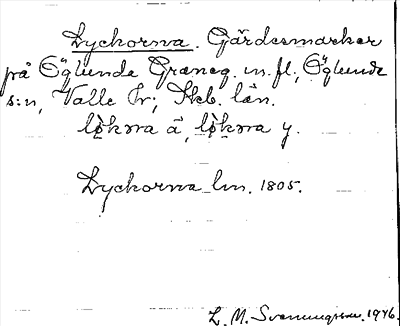 Lyckorna. Gärdesmarker
på Öglunda Graneg. m. fl., Öglunda
s:n, Valle hr; Skb. län.
Lyckorna lm. 1805.
L. M. Svenungsson. 1946.